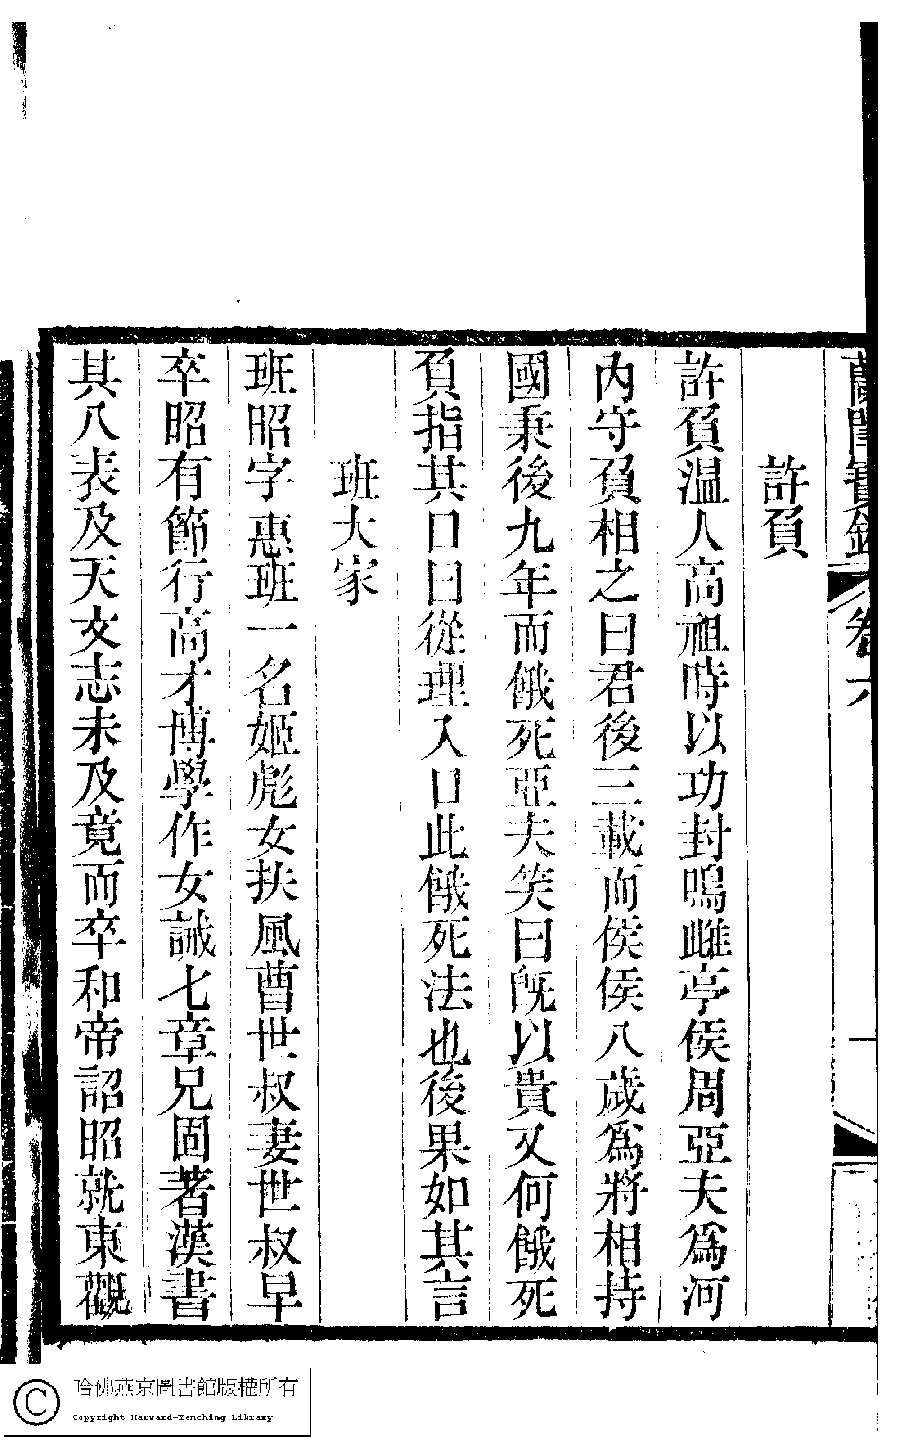 蘭閨寶錄 卷六 一
許負
許負溫人高祖時以功封鳴雌亭侯周亞夫爲河
內守負相之曰君後三載而侯侯八歲爲將相持
國秉後九年而餓死亞夫笑曰旣以貴又何餓死
負指其口曰從理入口此餓死法也後果如其言
班大家
班昭字惠班一名姬彪女扶風曹世叔妻世叔早
卒昭有節行高才博學作女誡七章兄固著漢書
其八表及天文志未及竟而卒和帝詔昭就東觀
哈佛燕京圖書館版權所有
Copyright Harvard-Yenching Library